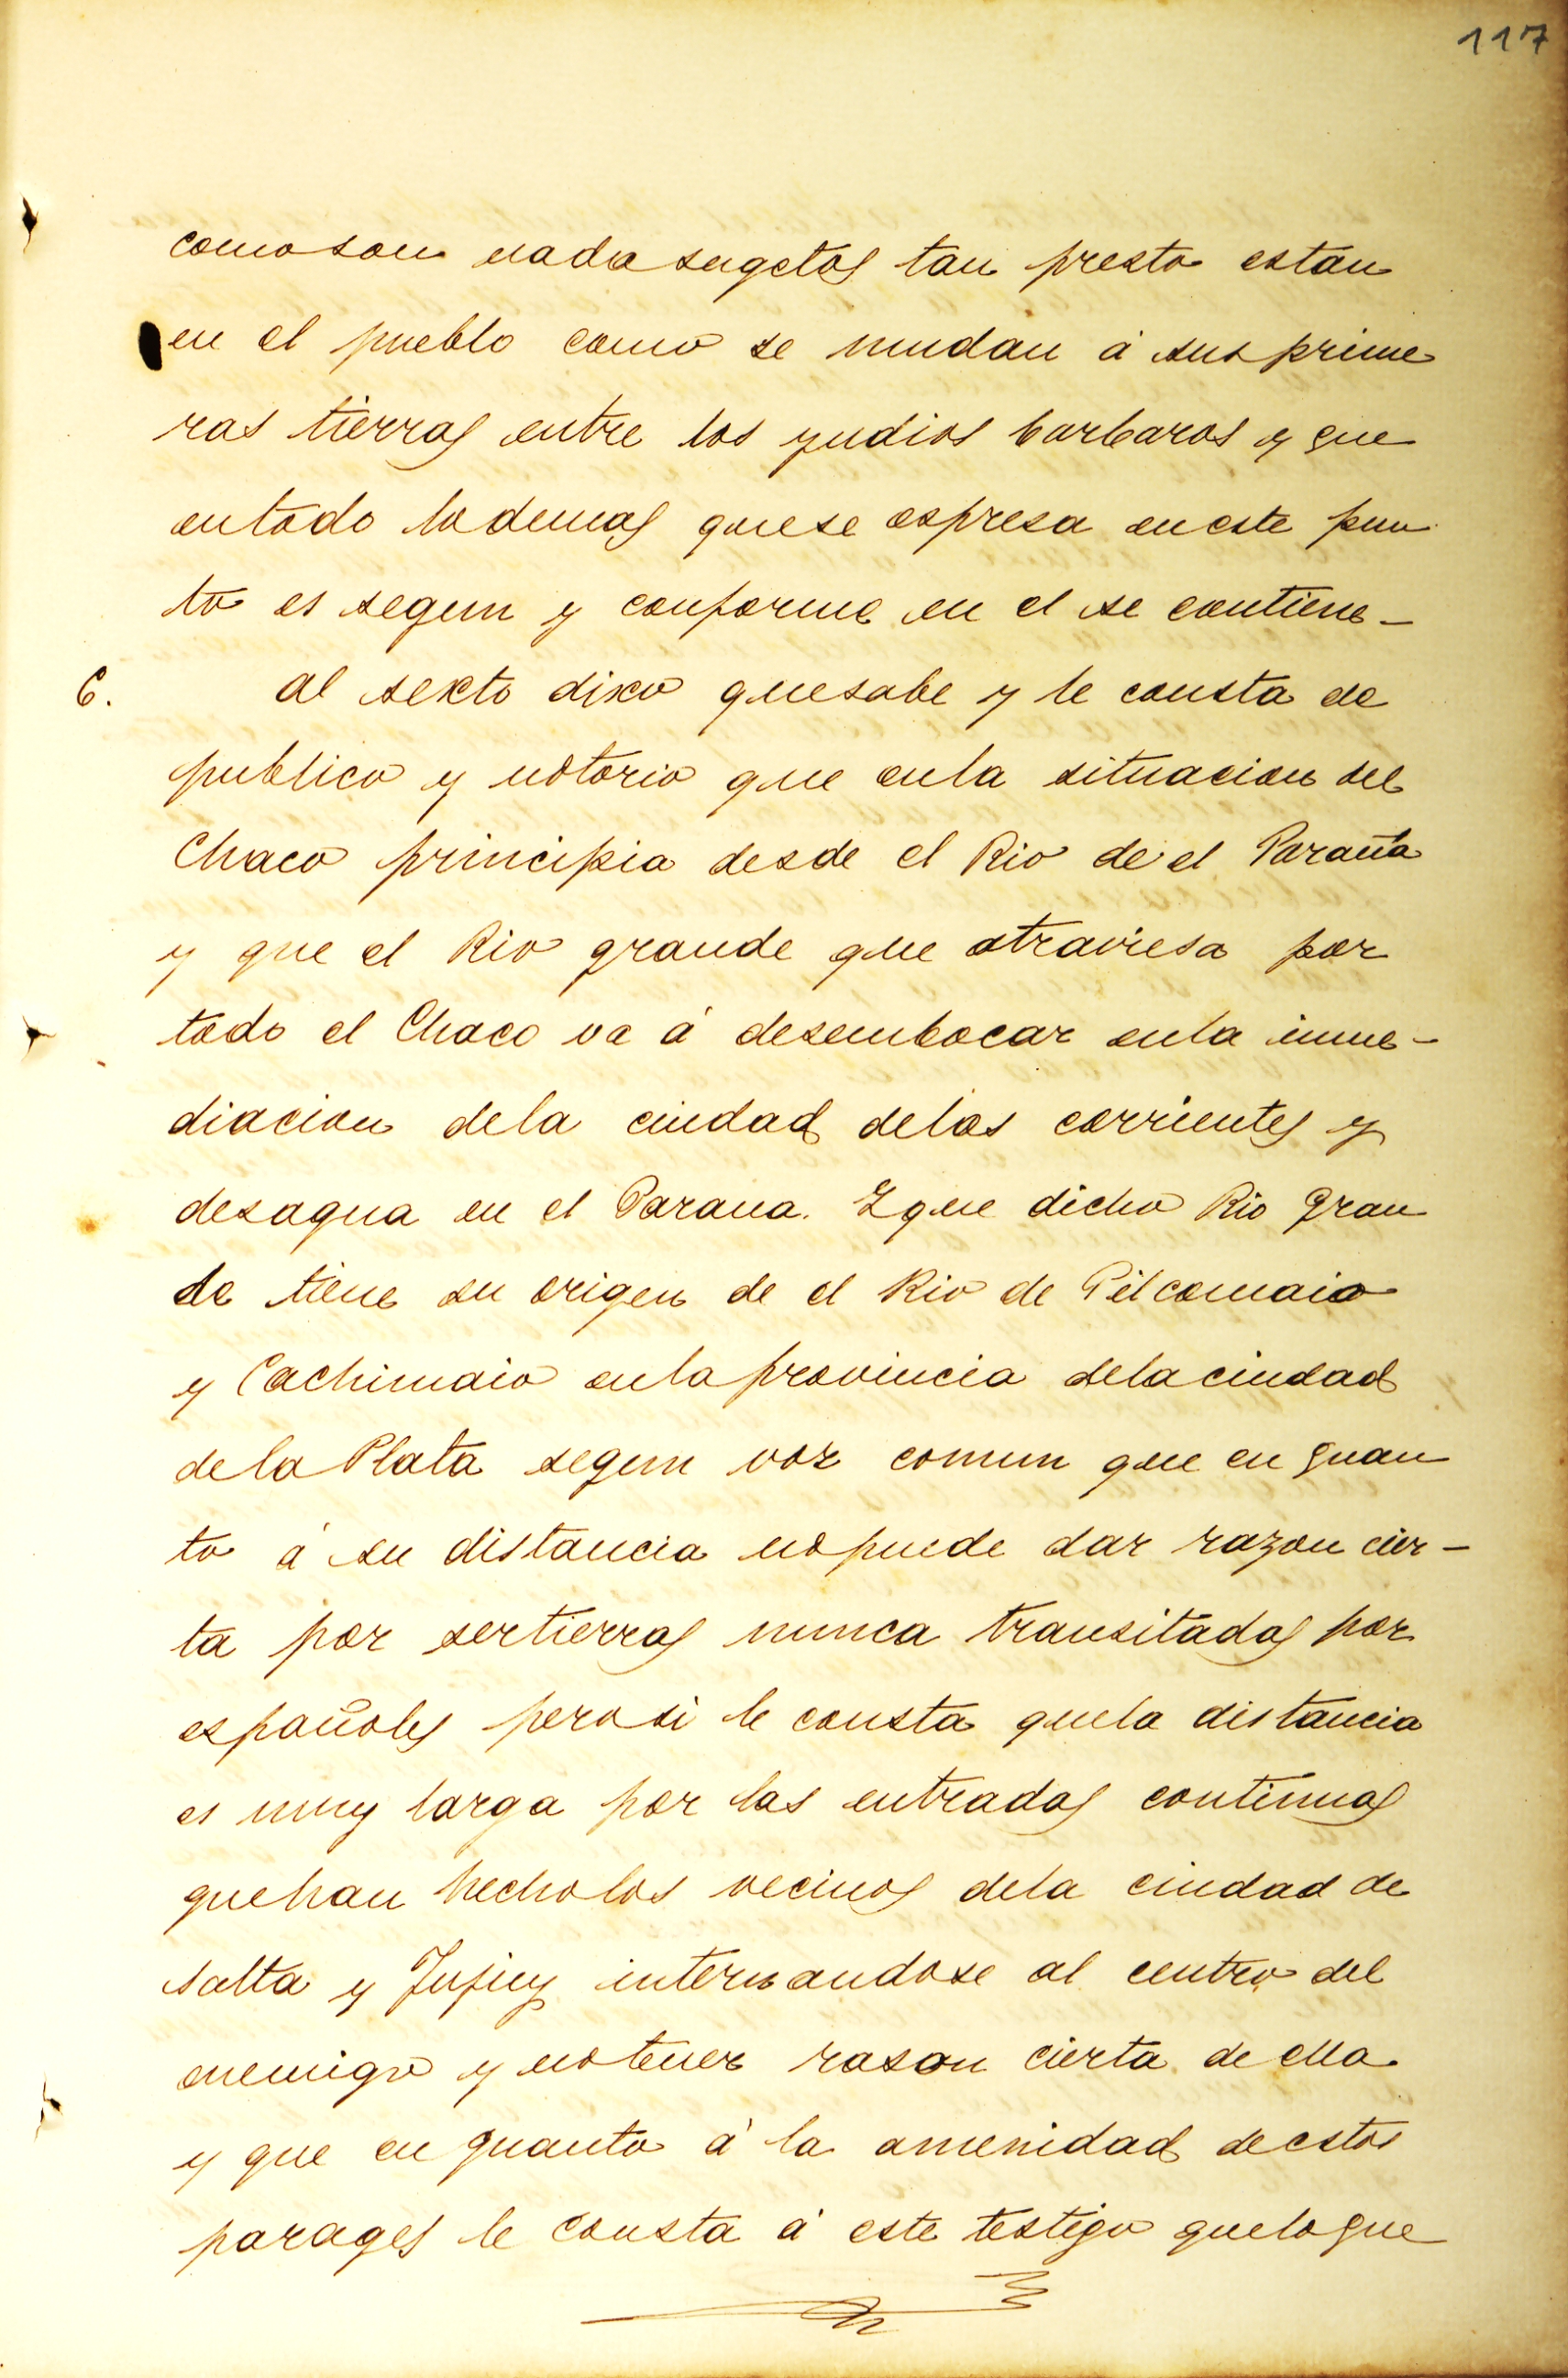 117
como son nada sugetos tan presto estan
en el pueblo como se mudan á sus prime
ras tierras entre los yudios barbaros y que
entodo lo demas que se espresa en este pun
to es segun y conforme en el se contiene_
6. al sexto dixo que sabe y le consta de
publico y notorio que enla situacion del
Chaco principia desde el Rio de el Paraña
y que el Rio grande que atraviesa por
todo el Chaco va á desembocar enla inme-
diacion dela ciudad delas corrientes y
desagua en el Parana. Y que dicho Rio Gran
de tiene su origen de el Rio de Pilcomaio
y Cachimaio enla provincia dela ciudad
de la Plata segun voz comun que en quan
to á su distancia no puede dar razon cier-
ta por ser tierras nunca transitadas por
españoles pero si le consta que la distancia
es muy larga por las entradas continuas
que han hecho los vecinos dela ciudad de
Salta y Jujuy internandose al centro del
enemigo y no tener rason cierta de ella
y que en quanto á la amenidad de estos
parages le consta á este testigo que lo que